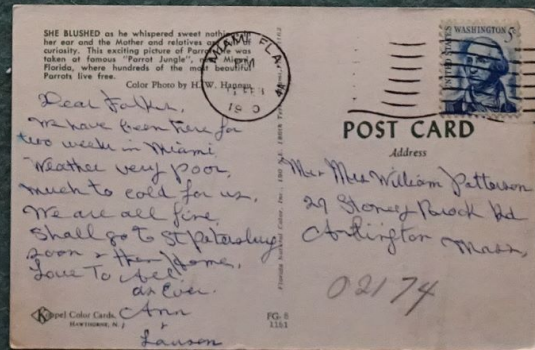 SHE BLUSHED as he whispered sweet
her ear and the Mother and relatives
curiosity. This exciting picture of
taken at famous "Parrot Jungle",
Florida, where hundreds of the most beautiful
Parrots live free.
Color Photo by H. W. Hannau
MIAMI, FLA.
PM
FEB
UNITED STATES
WASHINGTON 5c
POST CARD
Address
Dear Folks,
We have been here for
two weeks in Miami
Weather very poor,
much to cold for us,
We are all fine,
Shall go to St Petersburg
soon & then home,
Love To All
as Ever.
Ann
&
Lauson
Mr Mrs William Patterson
29 Stoney Brook Rd
Arlington Mass,
02174
Florida Natural Color, Inc.
Koppel Color Cards.
HAWTHORNE, N. J.
FG-8
1161